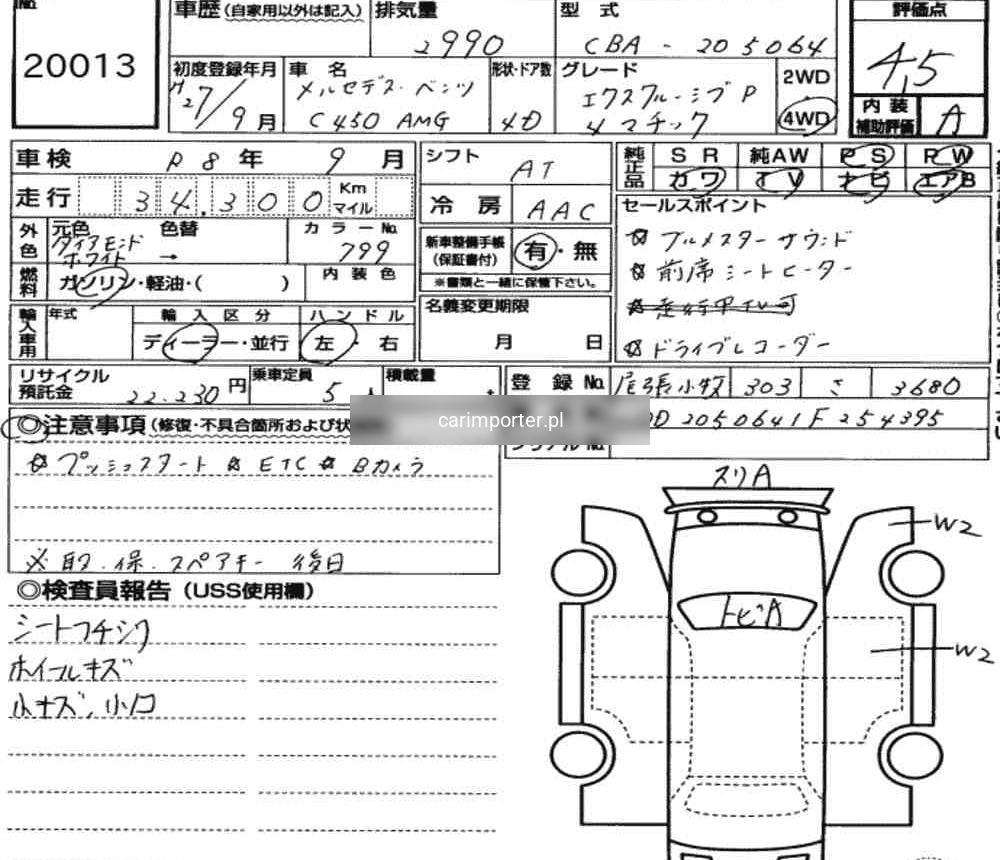 No.
20013
車歴 (自家用以外は記入) 排気量 型式 評価点
2990 CBA - 205064
4,5
初度登録年月 車名 形状・ドア数 グレード 2WD
H27/9月 メルセデス・ベンツ エクスクルーシブ P 4WD
C450 AMG 4D 4マチック
内装補助評価 A
車検 R8年 9月 シフト AT
純正品 SR 純AW PS PW
カワ TV ナビ エアB
走行 34,300 Km マイル
冷房 AAC
セールスポイント
外色 元色 色替 カラーNo.
ダイアモンドホワイト → 799
新車整備手帳 (保証書付) 有・無
☆ ブルメスターサウンド
☆ 前席シートヒーター
燃料 ガソリン・軽油・( ) 内装色
※書類と一緒に保管下さい。
☆ 走行中TV可
輸入車用 年式 輸入区分 ハンドル
ディーラー・並行 左・右
名義変更期限
月 日
☆ ドライブレコーダー
リサイクル預託金 22.230円 乗車定員 5人 積載量
登録No. 尾張小牧 303 さ 3680
carimporter.pl
D 2050641F254395
シリアルNo.
◎注意事項 (修復・不具合箇所および状
☆ プッシュスタート ☆ ETC ☆ Bカメラ
※ 取・保・スペアキー 後日
◎検査員報告 (USS使用欄)
シートフチシワ
ホイールキズ
小キズ、小凹
スリA
W2
トビA
W2